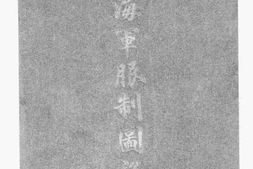 海軍服制圖